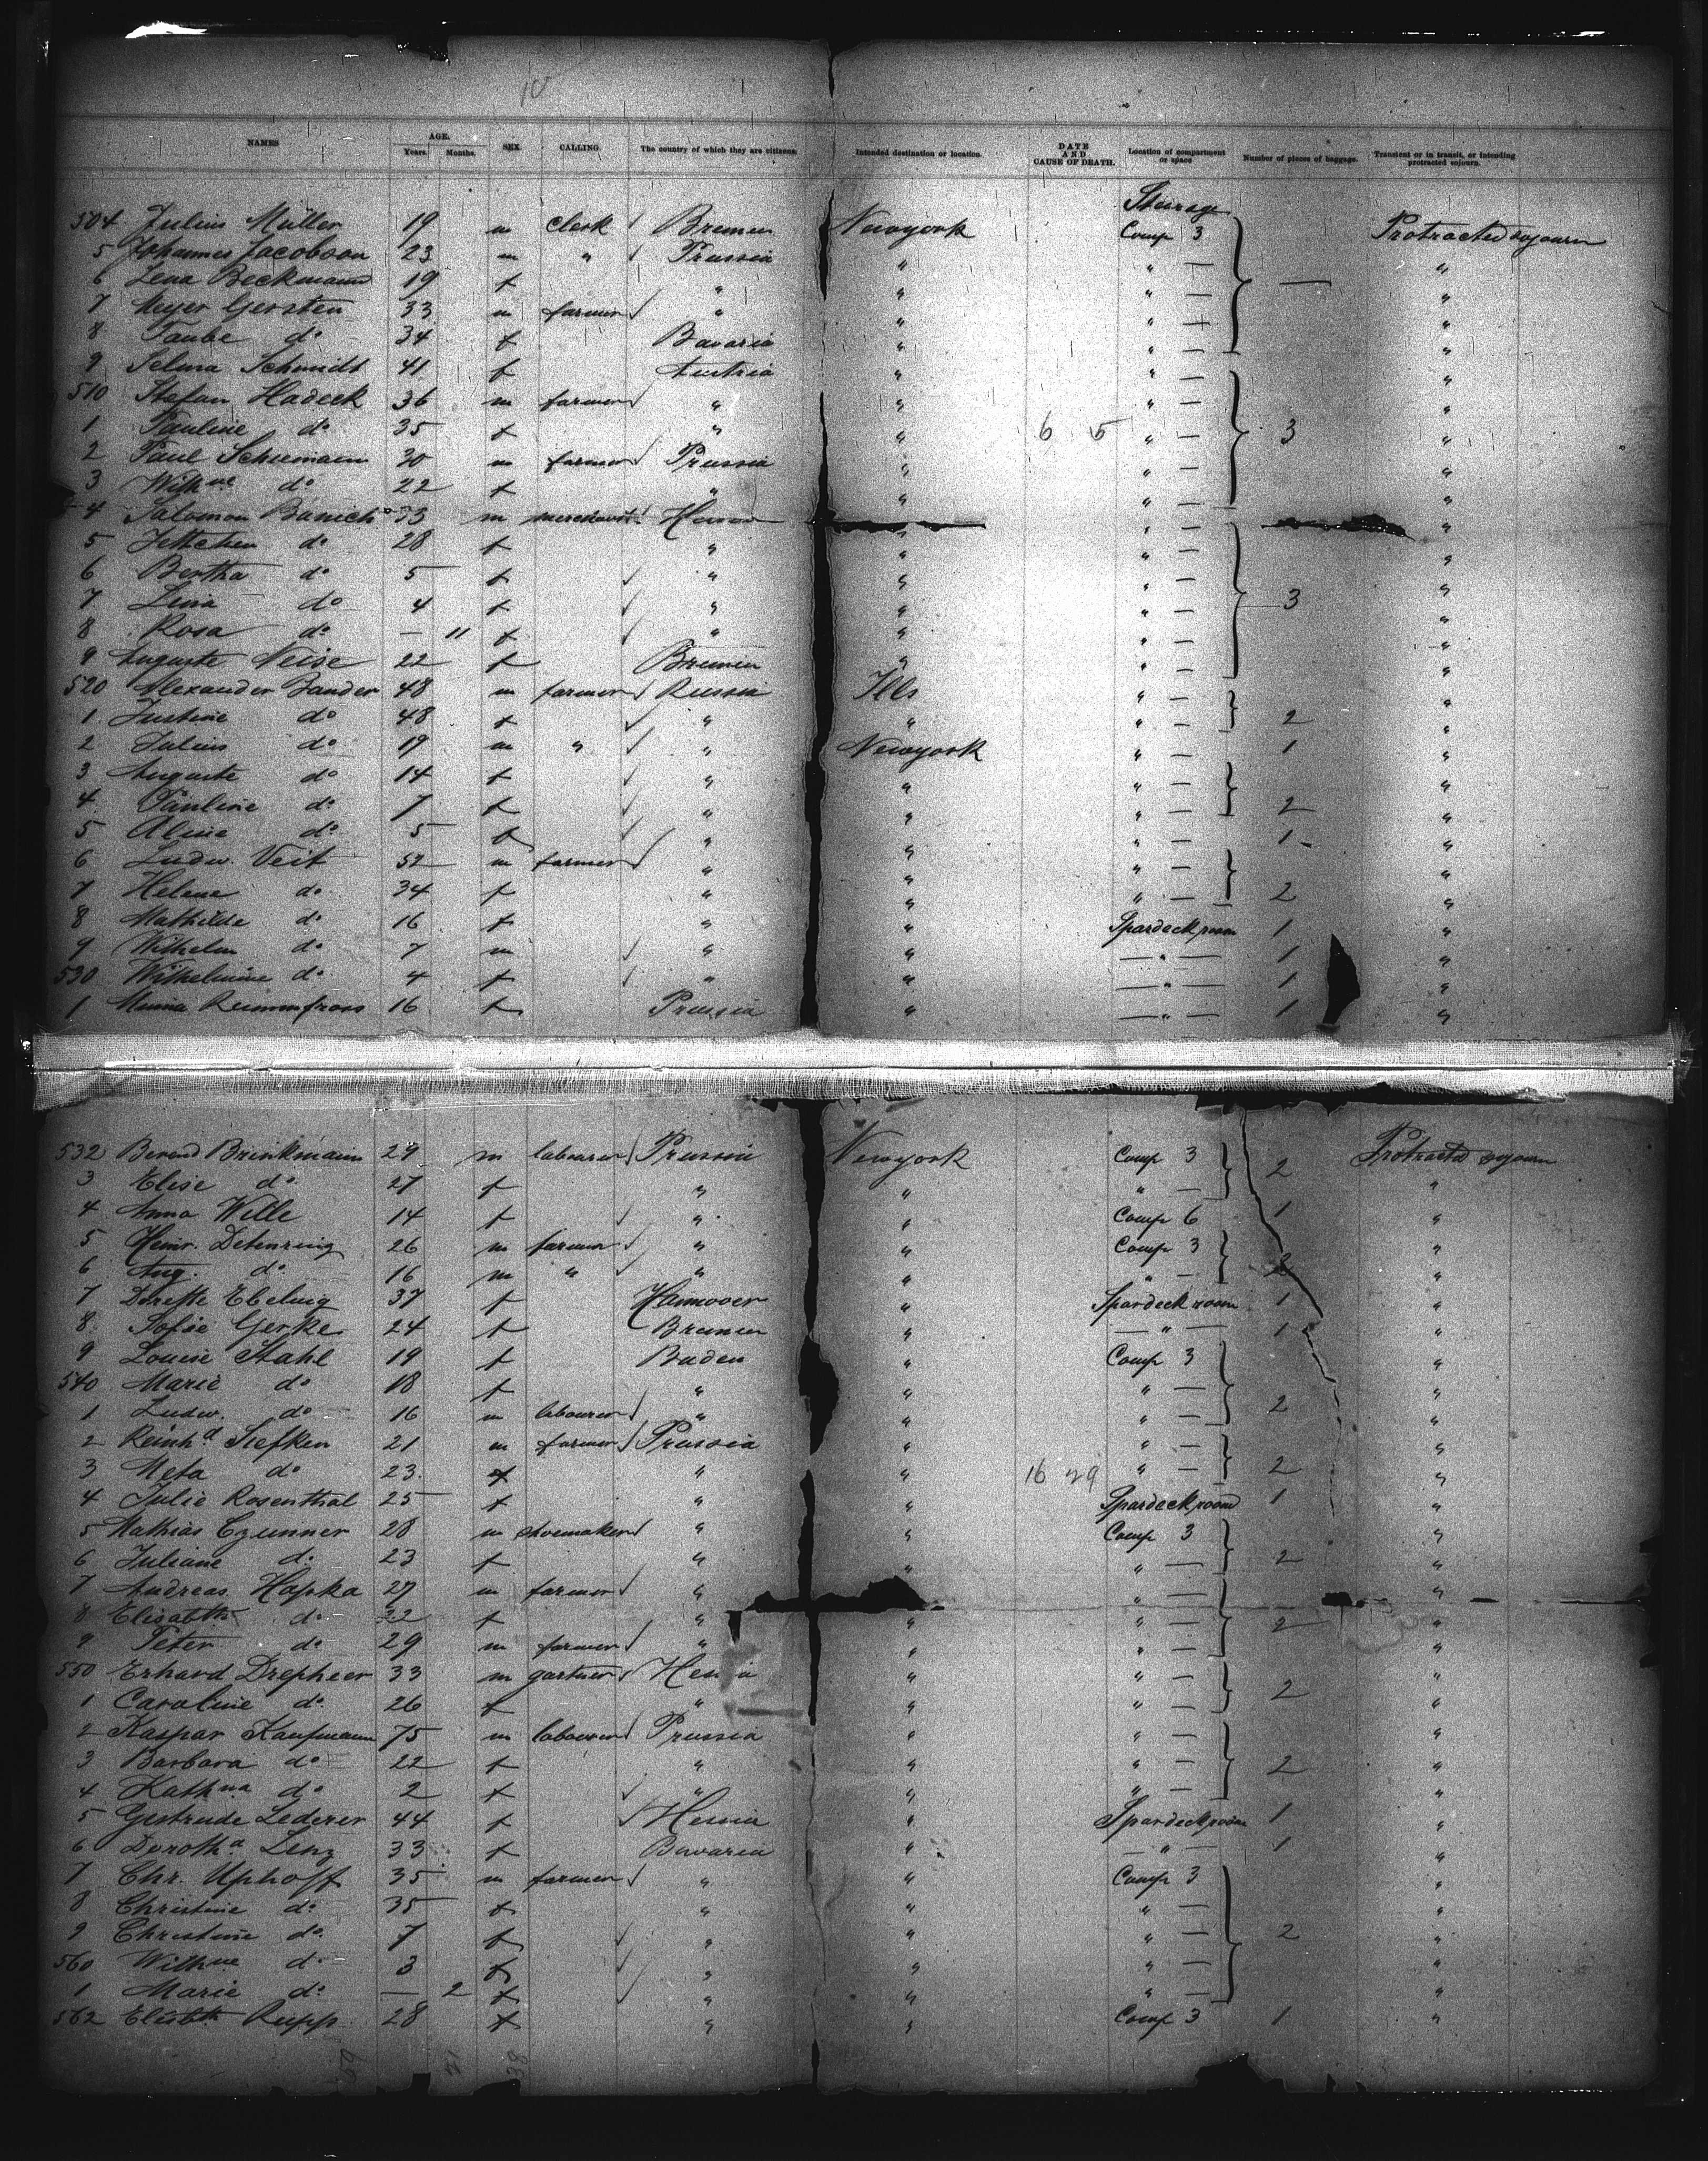 10
NAMES AGE. Years. Months. SEX. CALLING. The country of which they are citizens. Intended destination or location. DATE AND CAUSE OF DEATH. Location of compartment or space Number of pieces of baggage. Transient or in transit, or intending protracted sojourn.
Steerage
504 Julius Müller 19 m Clerk Bremen Newyork Comp 3 Protracted sojourn
5 Johannes Jacobson 23 m " Prussia " " — "
6 Lena Beckmann 19 f " " " — — "
7 Meyer Gersten 33 m farmer " " " — "
8 Taube do 34 f Bavaria " " — "
9 Selma Schmidt 41 f Austria " " — "
510 Stefan Hadeck 36 m farmer " " " — "
1 Pauline do 35 f " " 6 5 " — 3 "
2 Paul Schumann 30 m farmer Prussia " " — "
3 Wilhne do 22 f " " " — "
4 Salomon 33 m merchant " " — "
5 Jettchen do 28 f " " " — "
6 Bertha do 5 f " " " — "
7 Lina do 4 f " " " — 3 "
8 Rosa do — 11 f " " " — "
9 Auguste Neise 22 f Bremen " " — "
520 Alexander Zander 48 m farmer Russia Ills " — "
1 Justine do 48 f " " " — 2 "
2 Julius do 19 m " " Newyork " — 1 "
3 Auguste do 14 f " " " — "
4 Pauline do 7 f " " " — 2 "
5 Aline do 5 f " " " — 1 "
6 Ludw. Veit 52 m farmer " " " — "
7 Helene do 34 f " " " — 2 "
8 Mathilde do 16 f " " Spardeck room 1 "
9 Wilhelm do 7 m " " — " — 1 "
530 Wilhelmine do 4 f " " — " — 1 "
1 Minna 16 f Prussia " — " — 1 "
532 Berend Brinkmann 29 m labourer Prussia Newyork Comp 3 Protracted sojourn
3 Elise do 27 f " " " — 2 "
4 Anna Wille 14 f " " Comp 6 1 "
5 Heinr. Detenring 26 m farmer " " Comp 3 "
6 Aug. do 16 m " " " " — 2 "
7 Dorette Ebeling 37 f Hannover " Spardeck room 1 "
8 Sofie Gerke 24 f Bremen " — " — 1 "
9 Louise Stahl 19 f Baden " Comp 3 "
540 Marie do 18 f " " " — "
1 Ludw. do 16 m labourer " " " — 2 "
2 Reinhd Siefken 21 m farmer Prussia " " — "
3 Meta do 23 f " " 16 29 " — 2 "
4 Julie Rosenthal 25 f " " Spardeck room 1 "
5 Mathias Czunner 28 m shoemaker " " Comp 3 "
6 Juliane do 23 f " " " — 2 "
7 Andreas Hapka 27 m farmer " " — "
8 Elisabth do 22 f " " " — 2 "
9 Peter do 29 m farmer " " " — "
550 Erhard Drepheer 33 m gartner Hessia " " — "
1 Caroline do 26 f " " " — 2 "
2 Kaspar Kaufmann 75 m labourer Prussia " " — "
3 Barbara do 22 f " " " — 2 "
4 Kathna do 2 f " " " — "
5 Gertrude Lederer 44 f Hessia " Spardeck room 1 "
6 Dorotha Lenz 33 f Bavaria " — " — 1 "
7 Chr. Uphoff 35 m farmer " " Comp 3 "
8 Christine do 35 f " " " — "
9 Christine do 7 f " " " — 2 "
560 Wilhne do 3 f " " " — "
1 Marie do — 2 f " " " — "
562 Elisbth Rupp 28 f " " Comp 3 1 "